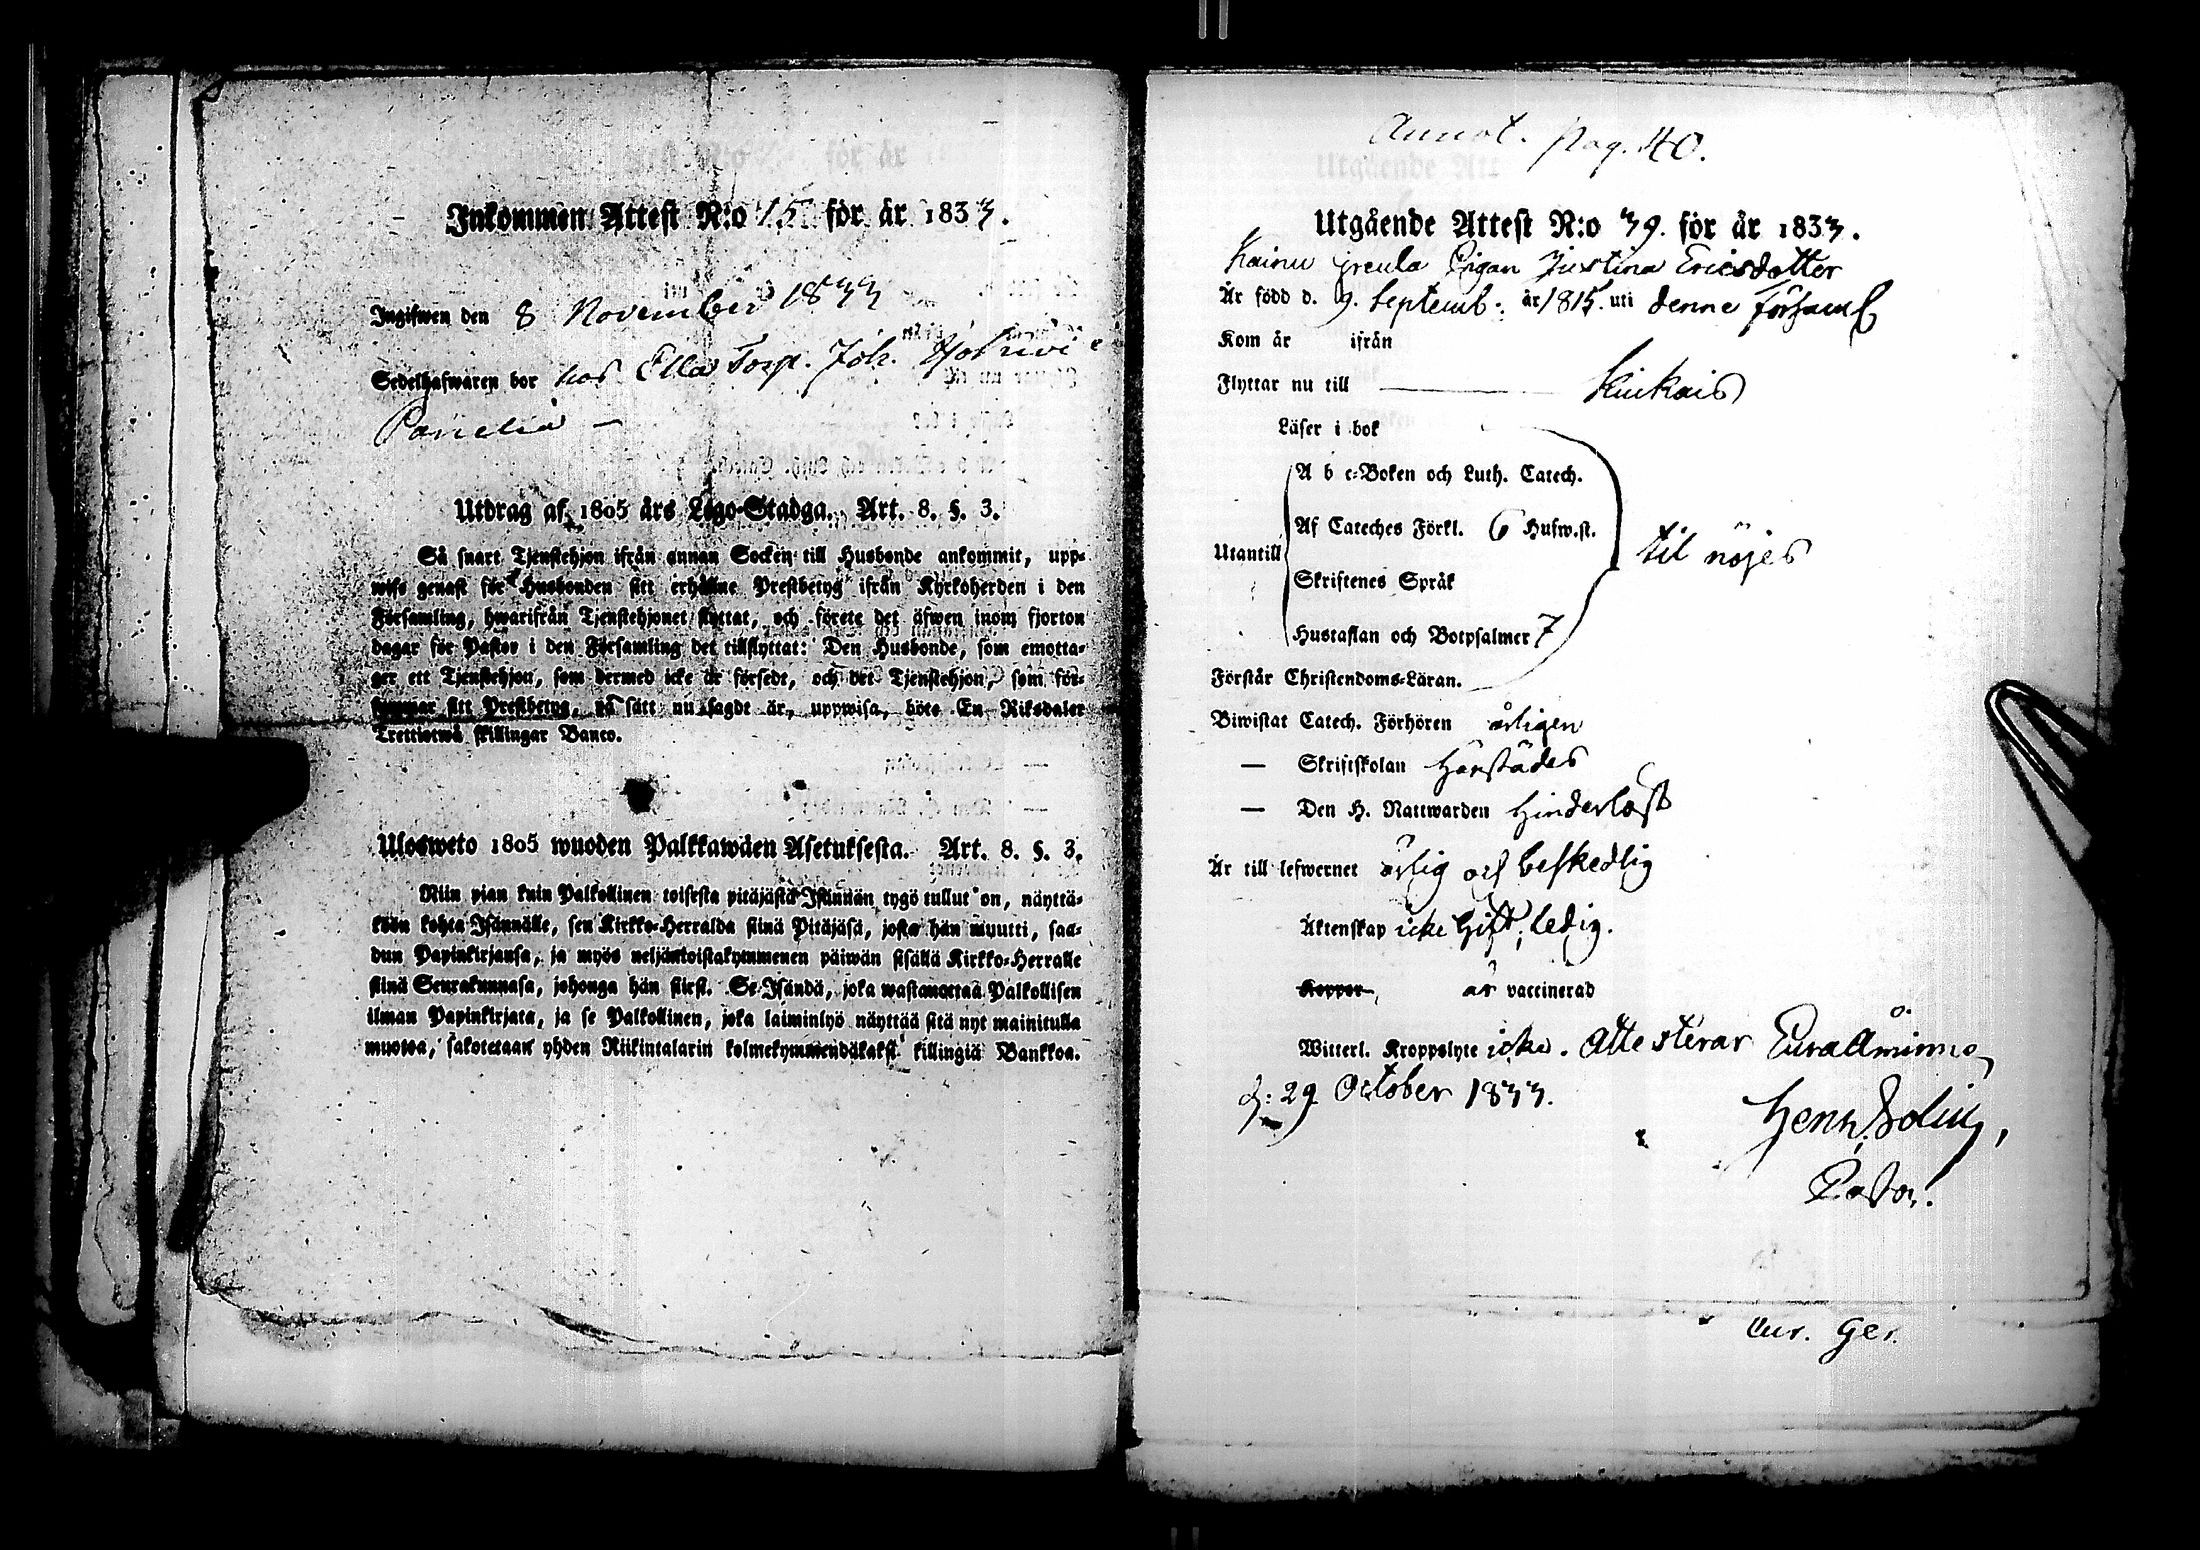 Inkommen Attest N:o 15 för år 1833.
Ingifwen den 8 November 1833
Sedelhafwaren bor hos Ella Torp. Joh.
Panelia –
Utdrag af 1805 års Lego-Stadga. Art. 8. §. 3.
Så snart Tjenstehjon ifrån annan Socken till Husbonde ankommit, upp-
wise genast för Husbonden sitt erhållne Prestbetyg ifrån Kyrkoherden i den
Församling, hwarifrån Tjenstehjonet flyttat, och förete det äfwen inom fjorton
dagar för Pastor i den Församling det tillflyttat: Den Husbonde, som emotta-
ger ett Tjenstehjon, som dermed icke är försedt, och det Tjenstehjon, som för-
summar sitt Prestbetyg, på sätt nu sagdt är, uppwisa, böte En Riksdaler
Trettiotwå skillingar Banco.
Ulosweto 1805 wuoden Palkkawäen Asetuksesta. Art. 8. §. 3.
Niin pian kuin Palkollinen toisesta pitäjästä Isännän tygö tullut on, näyttä-
köön kohta Isännälle, sen Kirkko-Herralda siinä Pitäjäsä, josta hän muutti, saa-
dun Papinkirjansa, ja myös neljäntoistakymmenen päiwän sisällä Kirkko-Herralle
siinä Seurakunnasa, johonga hän siirsi. Se Isändä, joka wastanottaa Palkollisen
ilman Papinkirjata, ja se Palkollinen, joka laiminlyö näyttää sitä nyt mainitulla
muotoa, sakotetaan yhden Riikintalarin kolmekymmendäkaksi killingiä Bankkoa.
Annot. pag. 40.
Utgående Attest N:o 39. för år 1833.
Kainu Pigan Justina Ericsdotter
Är född d. 9. Septemb: år 1815. uti denne förfaml
Kom år ifrån
Flyttar nu till Kiukais
Läser i bok
A b c-Boken och Luth. Catech.
Af Cateches Förkl. 6 Hufw.st.
Utantill
til nöjes
Skriftenes Språk
Hustaflan och Botpsalmer 7
Förstår Christendoms-Läran.
Biwistat Catech. Förhören årligen
— Skriftskolan härstädes
— Den H. Nattwarden hinderlöst
Är till lefwernet ärlig och beskedlig
Äktenskap icke Gift, ledig.
Koppor, är vaccinerad
Witterl. Kroppslyte icke. Attesterar Euraåminne
d: 29 October 1833.
Henr.
Pastor.